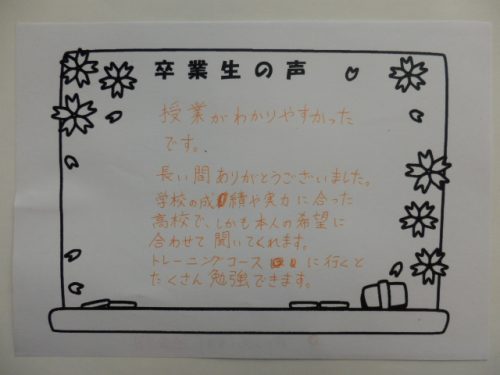 卒業生の声
授業がわかりやすかった
です。
長い間ありがとうございました。
学校の成績や実力に合った
高校で、しかも本人の希望に
合わせて聞いてくれます。
トレーニングコースに行くと
たくさん勉強できます。